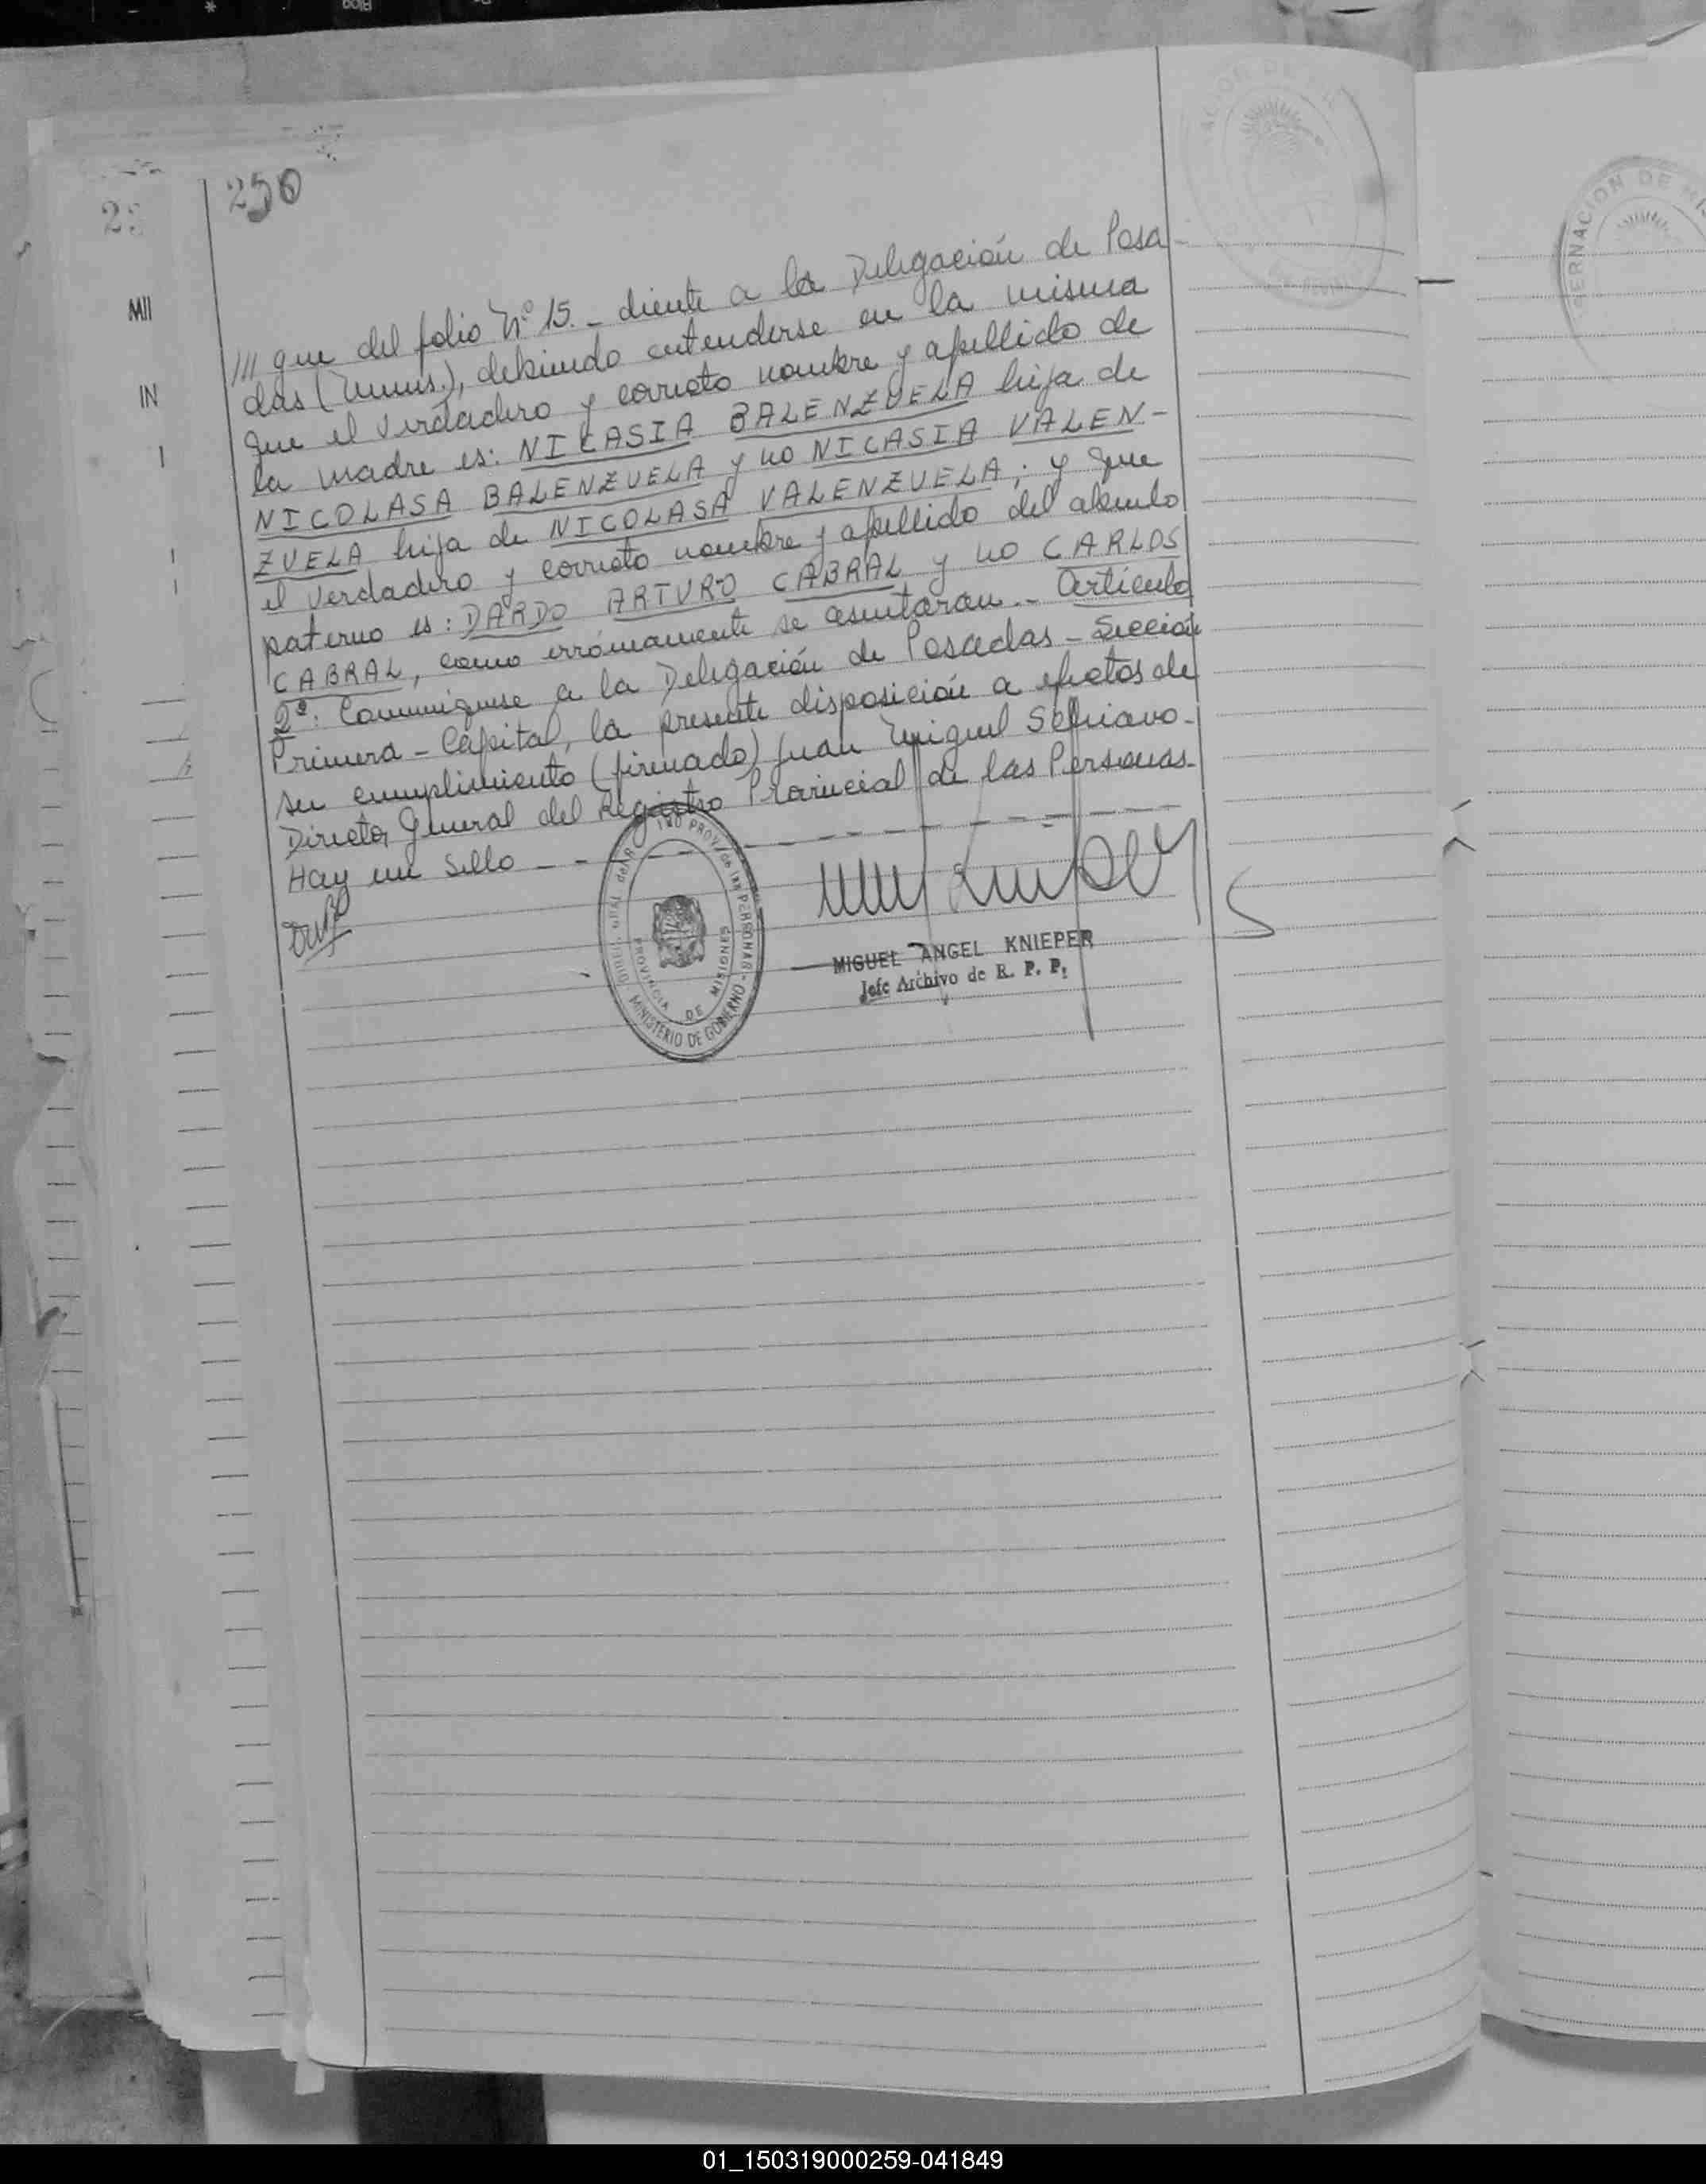 250
MII
IN
/// que del folio Nº 15.- diente a la Delegación de Posa-
das (Mnes.), debiendo entenderse en la misma
que el verdadero y correcto nombre y apellido de
la madre es: NICASIA BALENZUELA hija de
NICOLASA BALENZUELA y no NICASIA VALEN-
ZUELA hija de NICOLASA VALENZUELA; y que
el verdadero y correcto nombre y apellido del abuelo
paterno es: DARDO ARTURO CABRAL y no CARLOS
CABRAL, como erróneamente se asentaran.- Artículo
2º: Comuníquese a la Delegación de Posadas - Sección
Primera - Capital, la presente disposición a efectos de
su cumplimiento (firmado) Juan Miguel
Director General del Registro Provincial de las Personas-
Hay un sello - - - - - - - -
MINISTERIO DE GOBIERNO
PROVINCIA DE MISIONES
MIGUEL ANGEL KNIEPER
Jefe Archivo de R. P. P.
01_150319000259-041849